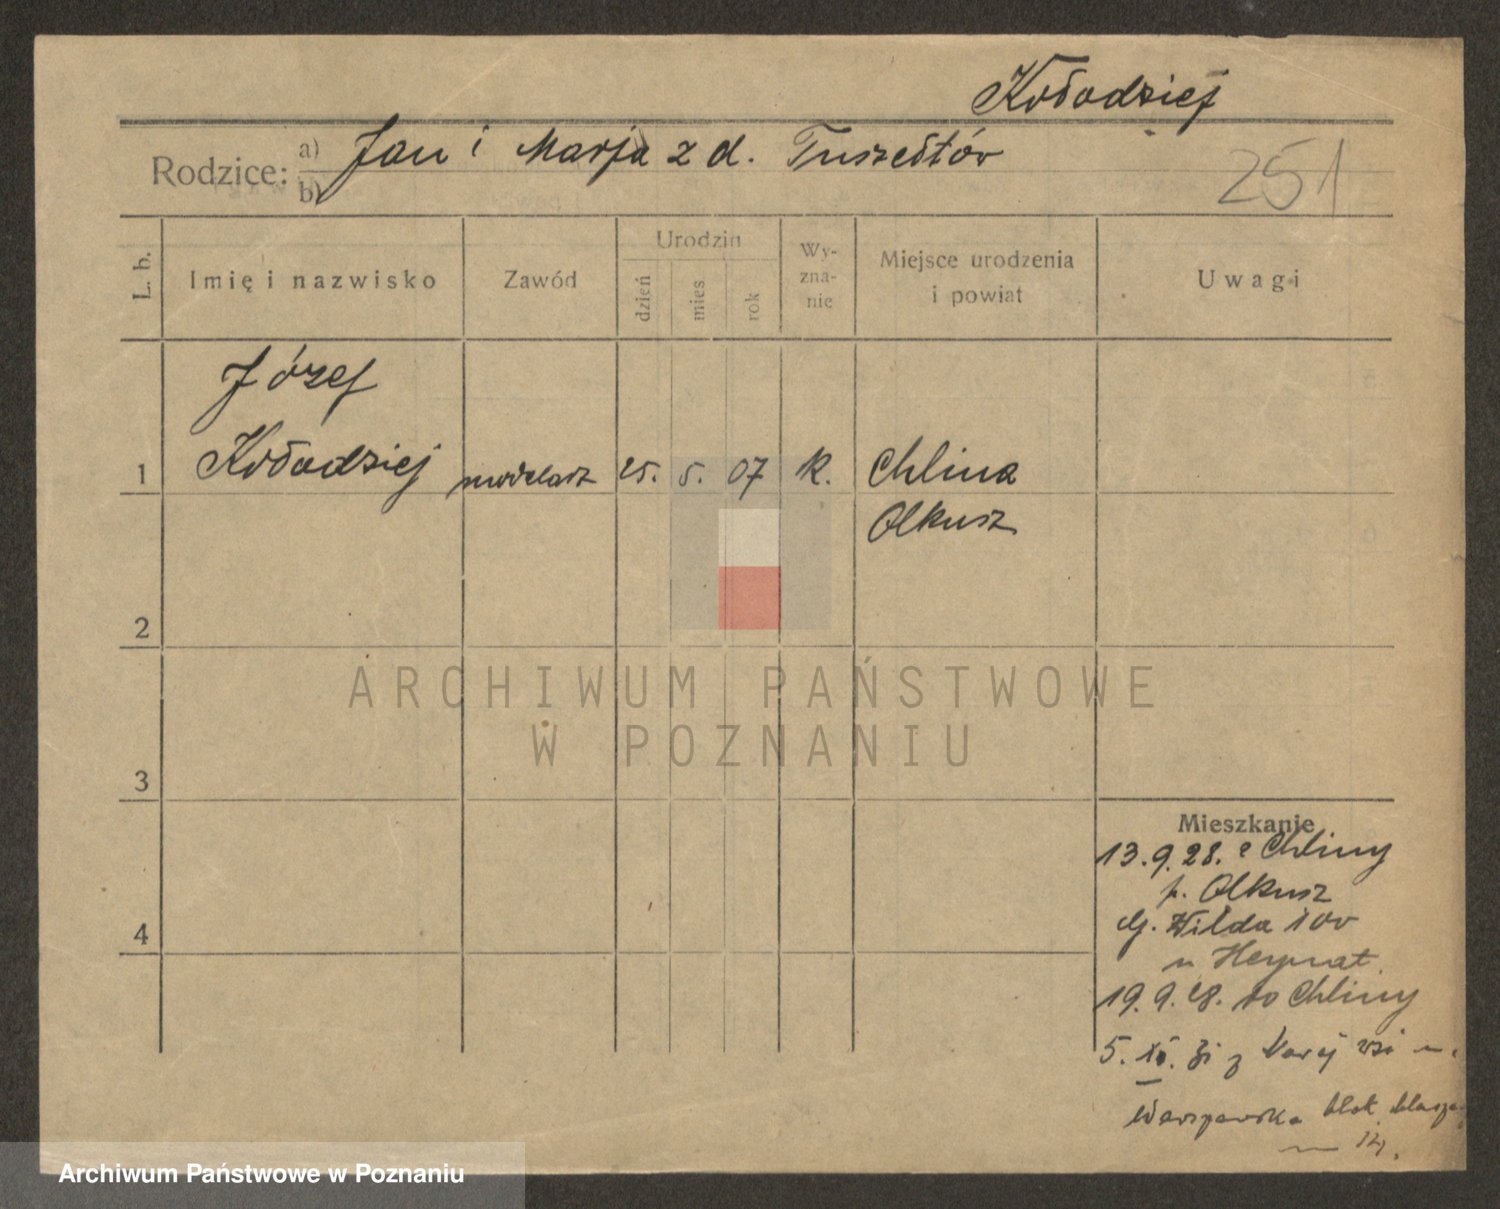 Kołodziej
Rodzice: a) Jan i Marja z d.
b)
251
L. b.
Imię i nazwisko
Zawód
Urodzin
dzień
mies
rok
Wy-
zna-
nie
Miejsce urodzenia
i powiat
Uwagi
Józef
1 Kołodziej modelarz 25. 5. 07 k. Chlina
Olkusz
2
3
4
Mieszkanie
13. 9. 28. z Chliny
p. Olkusz
G. Wilda 100
19. 9. 28. do Chliny
5. XI. 31 z wsi
Warszawska blok
14.
ARCHIWUM PAŃSTWOWE
W POZNANIU
Archiwum Państwowe w Poznaniu